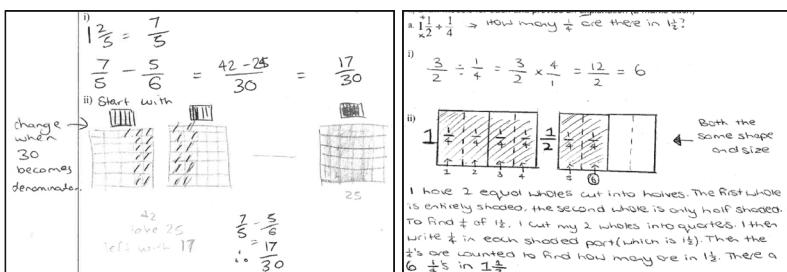 i)
1 2/5 = 7/5
7/5 - 5/6 = 42-25/30 = 17/30
ii) Start with
change →
when
30
becomes
denominator.
25
42
take 25
left with 17
7/5 - 5/6
=
∴ 17/30
a. 1 1/2 ÷ 1/4 → How many 1/4 are there in 1 1/2?
i)
3/2 ÷ 1/4 = 3/2 × 4/1 = 12/2 = 6
ii)
1 1/4 1/4 1/4 1/4 1/2 1/4 1/4
1 2 3 4 5 6
← Both the
same shape
and size
I have 2 equal wholes cut into halves. The first whole
is entirely shaded, the second whole is only half shaded.
To find 1/4 of 1 1/2, I cut my 2 wholes into quarters. I then
write 1/4 in each shaded part (which is 1 1/2). Then the
1/4's are counted to find how many are in 1 1/2. There a
6 1/4's in 1 1/2